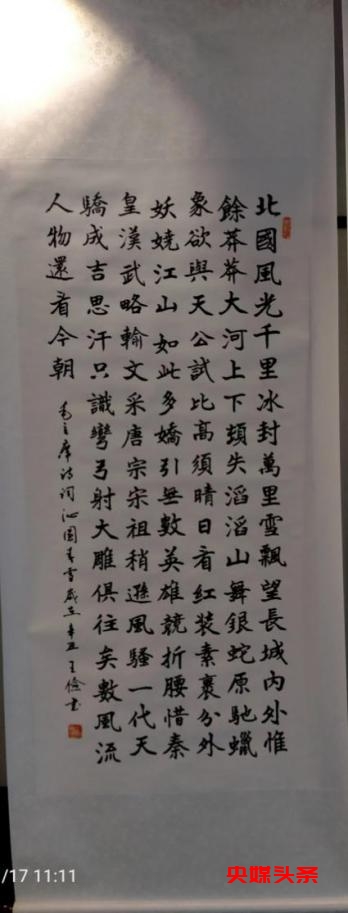 北國風光千里冰封萬里雪飄望長城內外惟
餘莽莽大河上下頓失滔滔山舞銀蛇原馳蠟
象欲與天公試比高須晴日看紅装素裹分外
妖嬈江山如此多嬌引無數英雄競折腰惜秦
皇漢武略輸文采唐宗宋祖稍遜風騷一代天
驕成吉思汗只識彎弓射大雕俱往矣數風流
人物還看今朝
毛主席詩詞沁園春雪歲在辛丑王俭書
/17 11:11
央媒头条